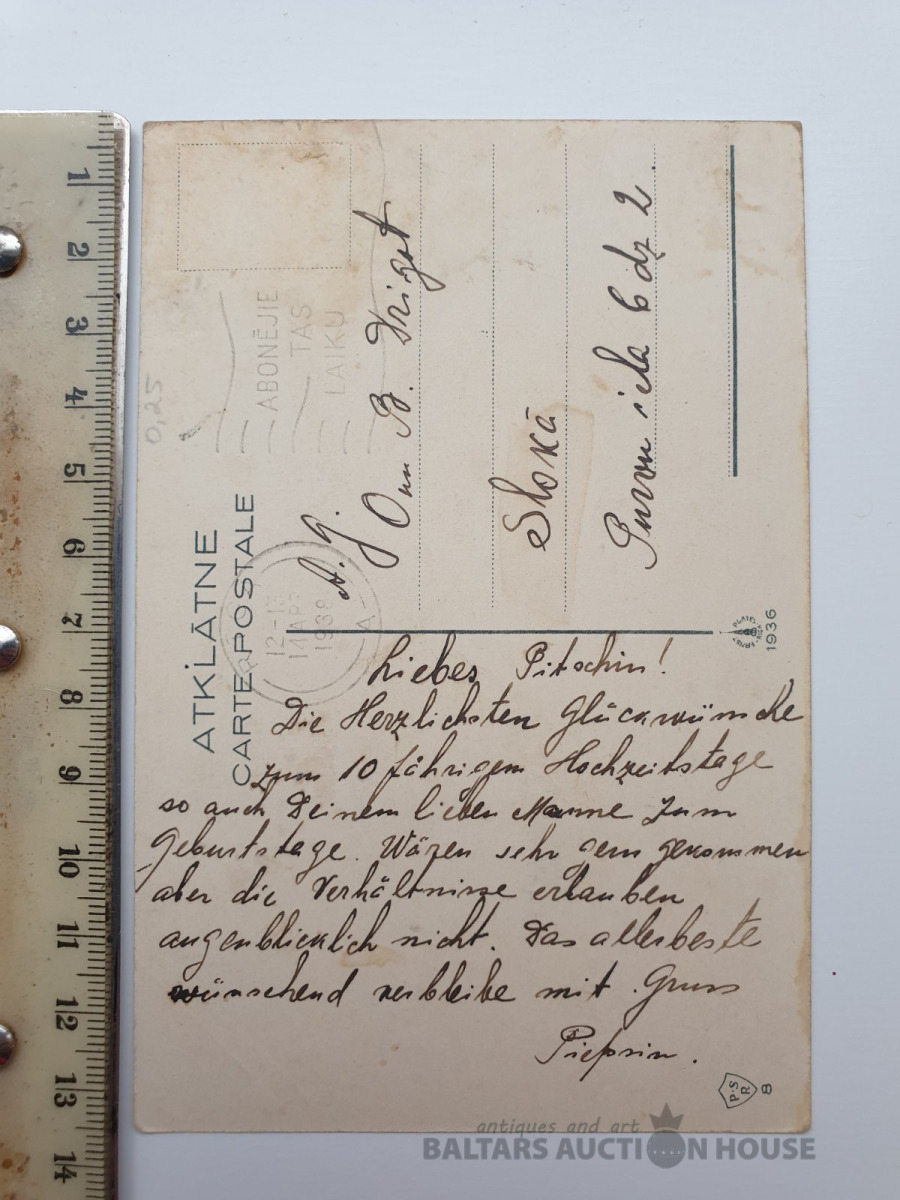 ATKLĀTNE
CARTE POSTALE
0,25
ABONĒJIE
TAS
LAIKU
12-13
14 AP
1938
A
A. G.
B.
Slokā
Purvu iela 6 dz 2.
1936
Liebes Pitschin!
Die Herzlichsten Glückwünsche
zum 10 jährigem Hochzeitstage
so auch Deinem lieben Manne zum
Geburtstage. Wären sehr gern gekommen
aber die Verhältnisse erlauben
augenblicklich nicht. Das allerbeste
wünschend verbleibe mit Gruss
P.S
R
8
antiques and art
BALTARS AUCTION HOUSE
1
2
3
4
5
6
7
8
9
10
11
12
13
14